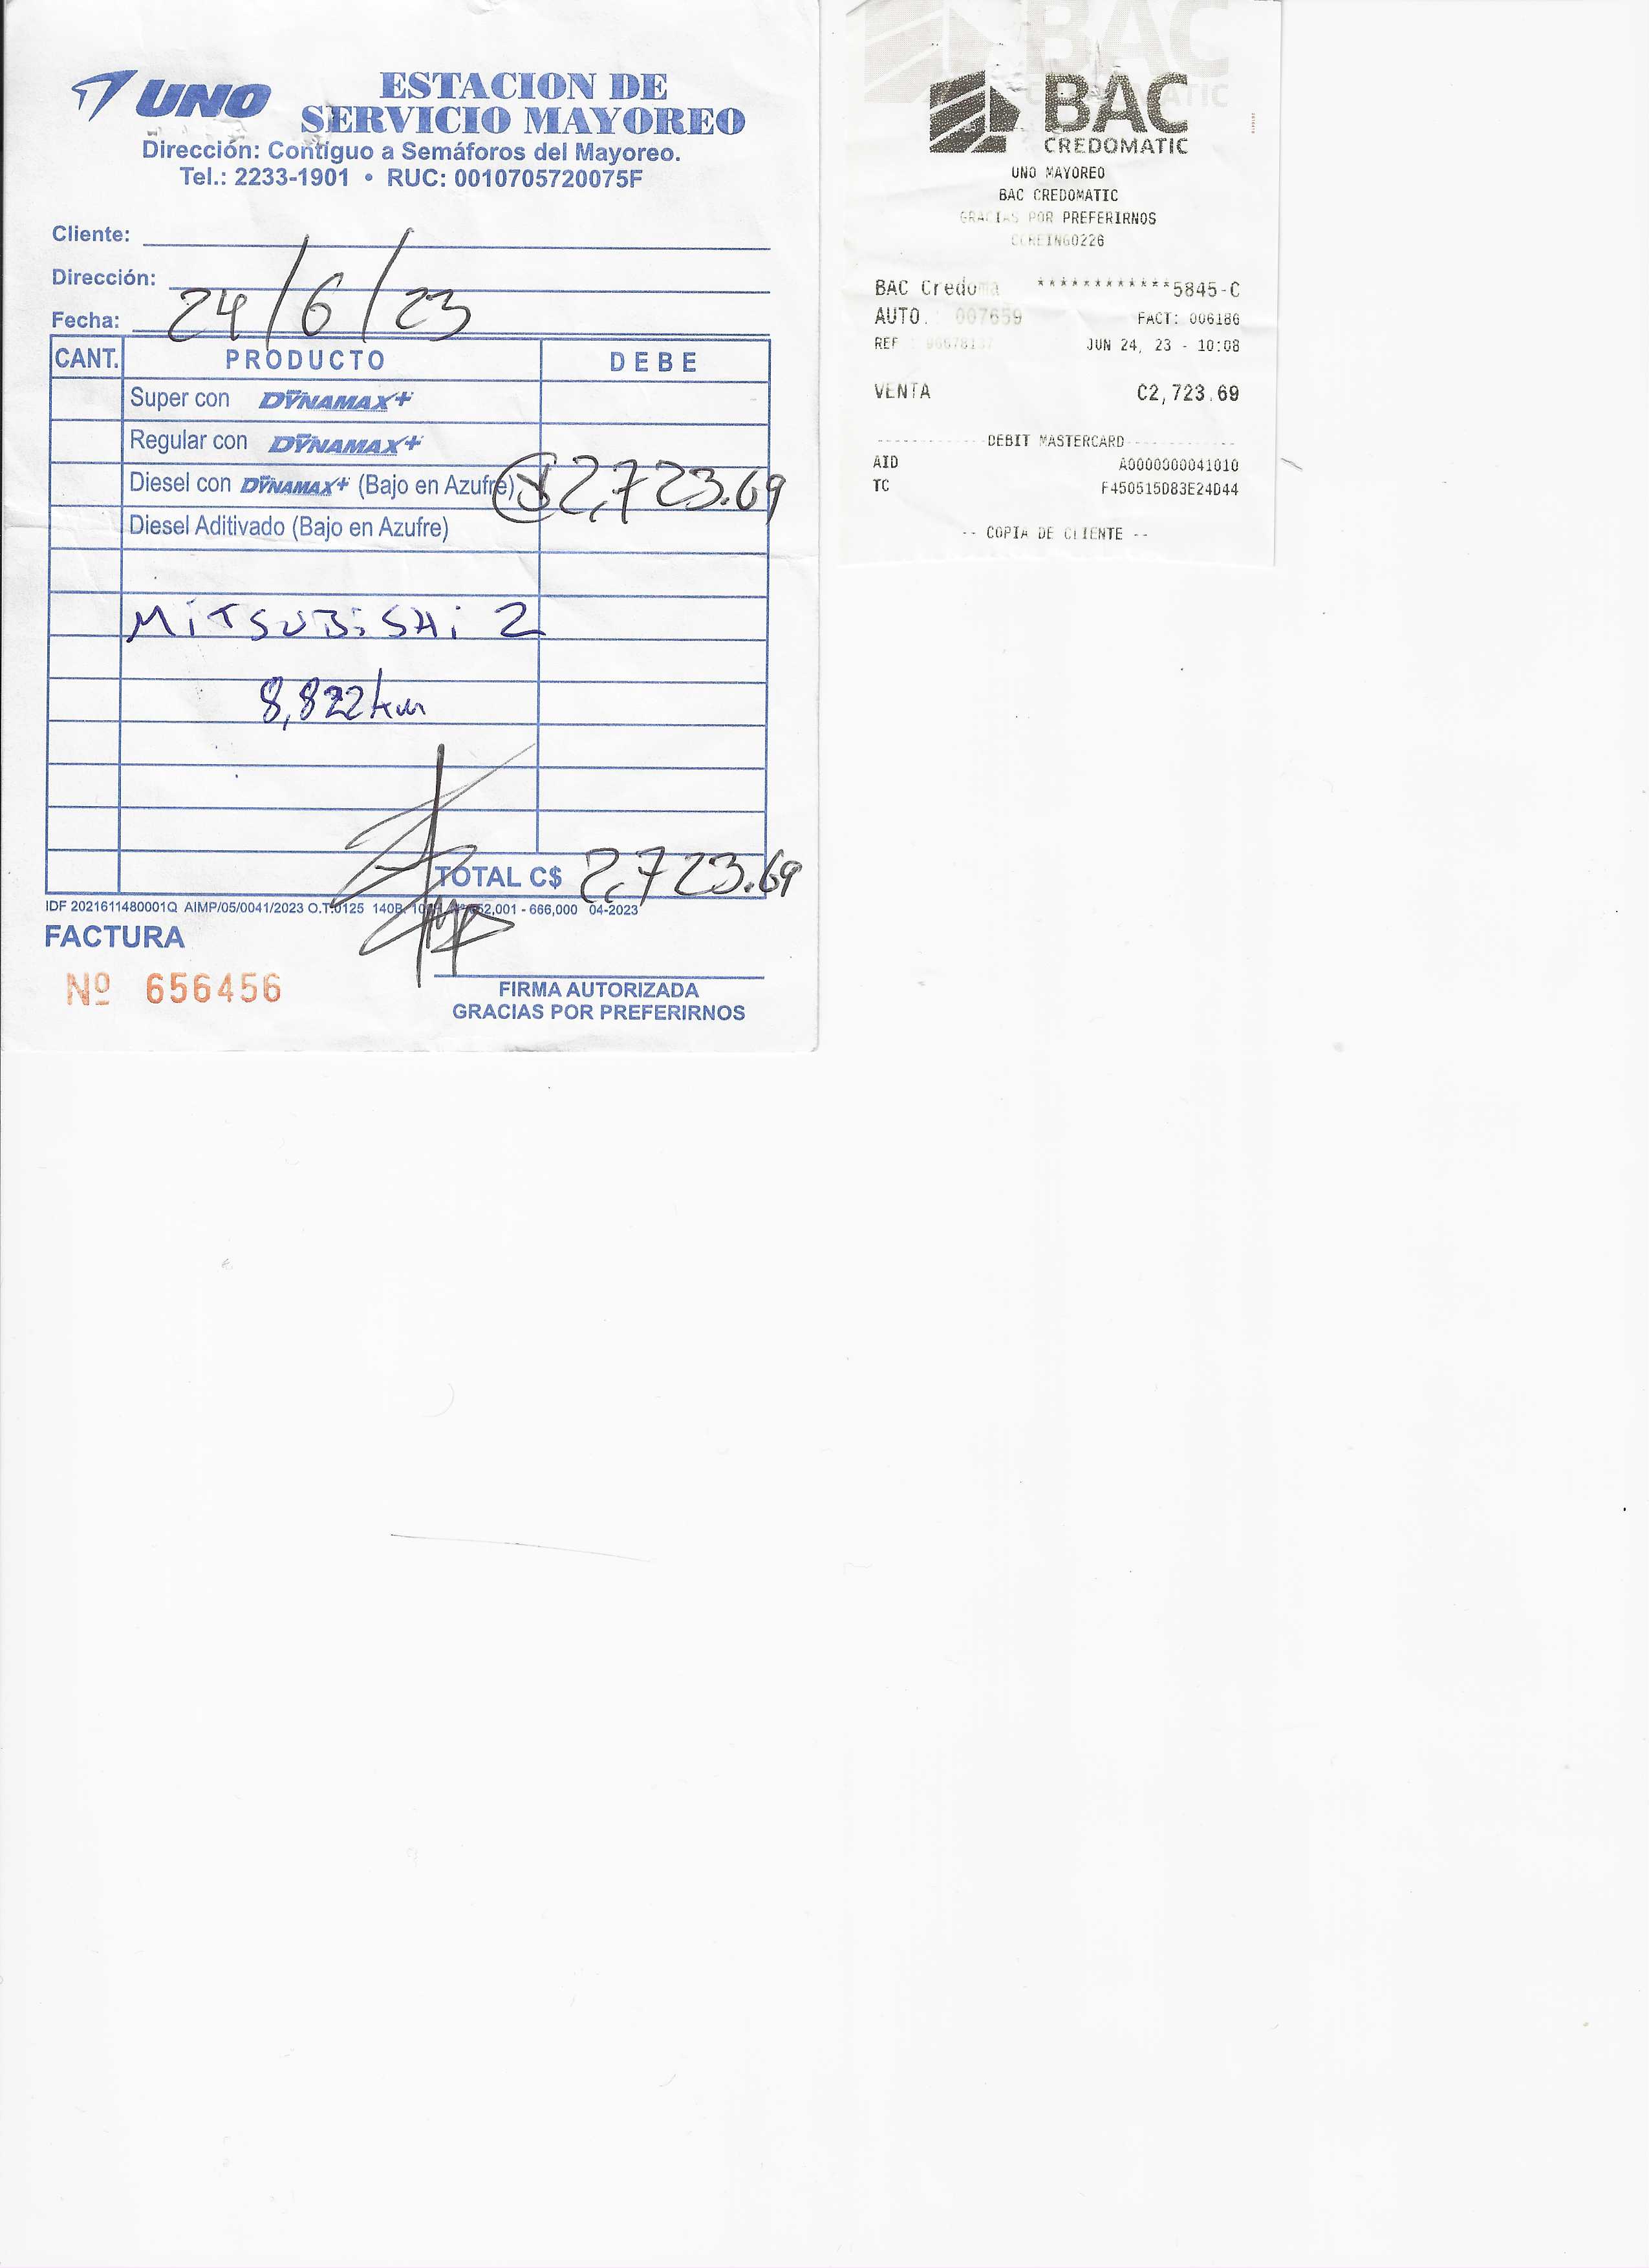 UNO
ESTACION DE
SERVICIO MAYOREO
Dirección: Contiguo a Semáforos del Mayoreo.
Tel.: 2233-1901 • RUC: 0010705720075F
Cliente:
Dirección:
Fecha: 24/6/23
CANT. PRODUCTO DEBE
Super con DYNAMAX+
Regular con DYNAMAX+
Diesel con DYNAMAX+ (Bajo en Azufre) 2,723.69
Diesel Aditivado (Bajo en Azufre)
MiTSUBiSHi 2
8,822km
TOTAL C$ 2,723.69
IDF 2021611480001Q AIMP/05/0041/2023 O.T.0125 140B. - 666,000 04-2023
FACTURA
Nº 656456
FIRMA AUTORIZADA
GRACIAS POR PREFERIRNOS
BAC
CREDOMATIC
UNO MAYOREO
BAC CREDOMATIC
GRACIAS POR PREFERIRNOS
BAC Credoma ************5845-C
AUTO. : 007659 FACT: 006186
REF : JUN 24, 23 - 10:08
VENTA C2,723.69
DEBIT MASTERCARD
AID A0000000041010
TC F450515D83E24D44
-- COPIA DE CLIENTE --